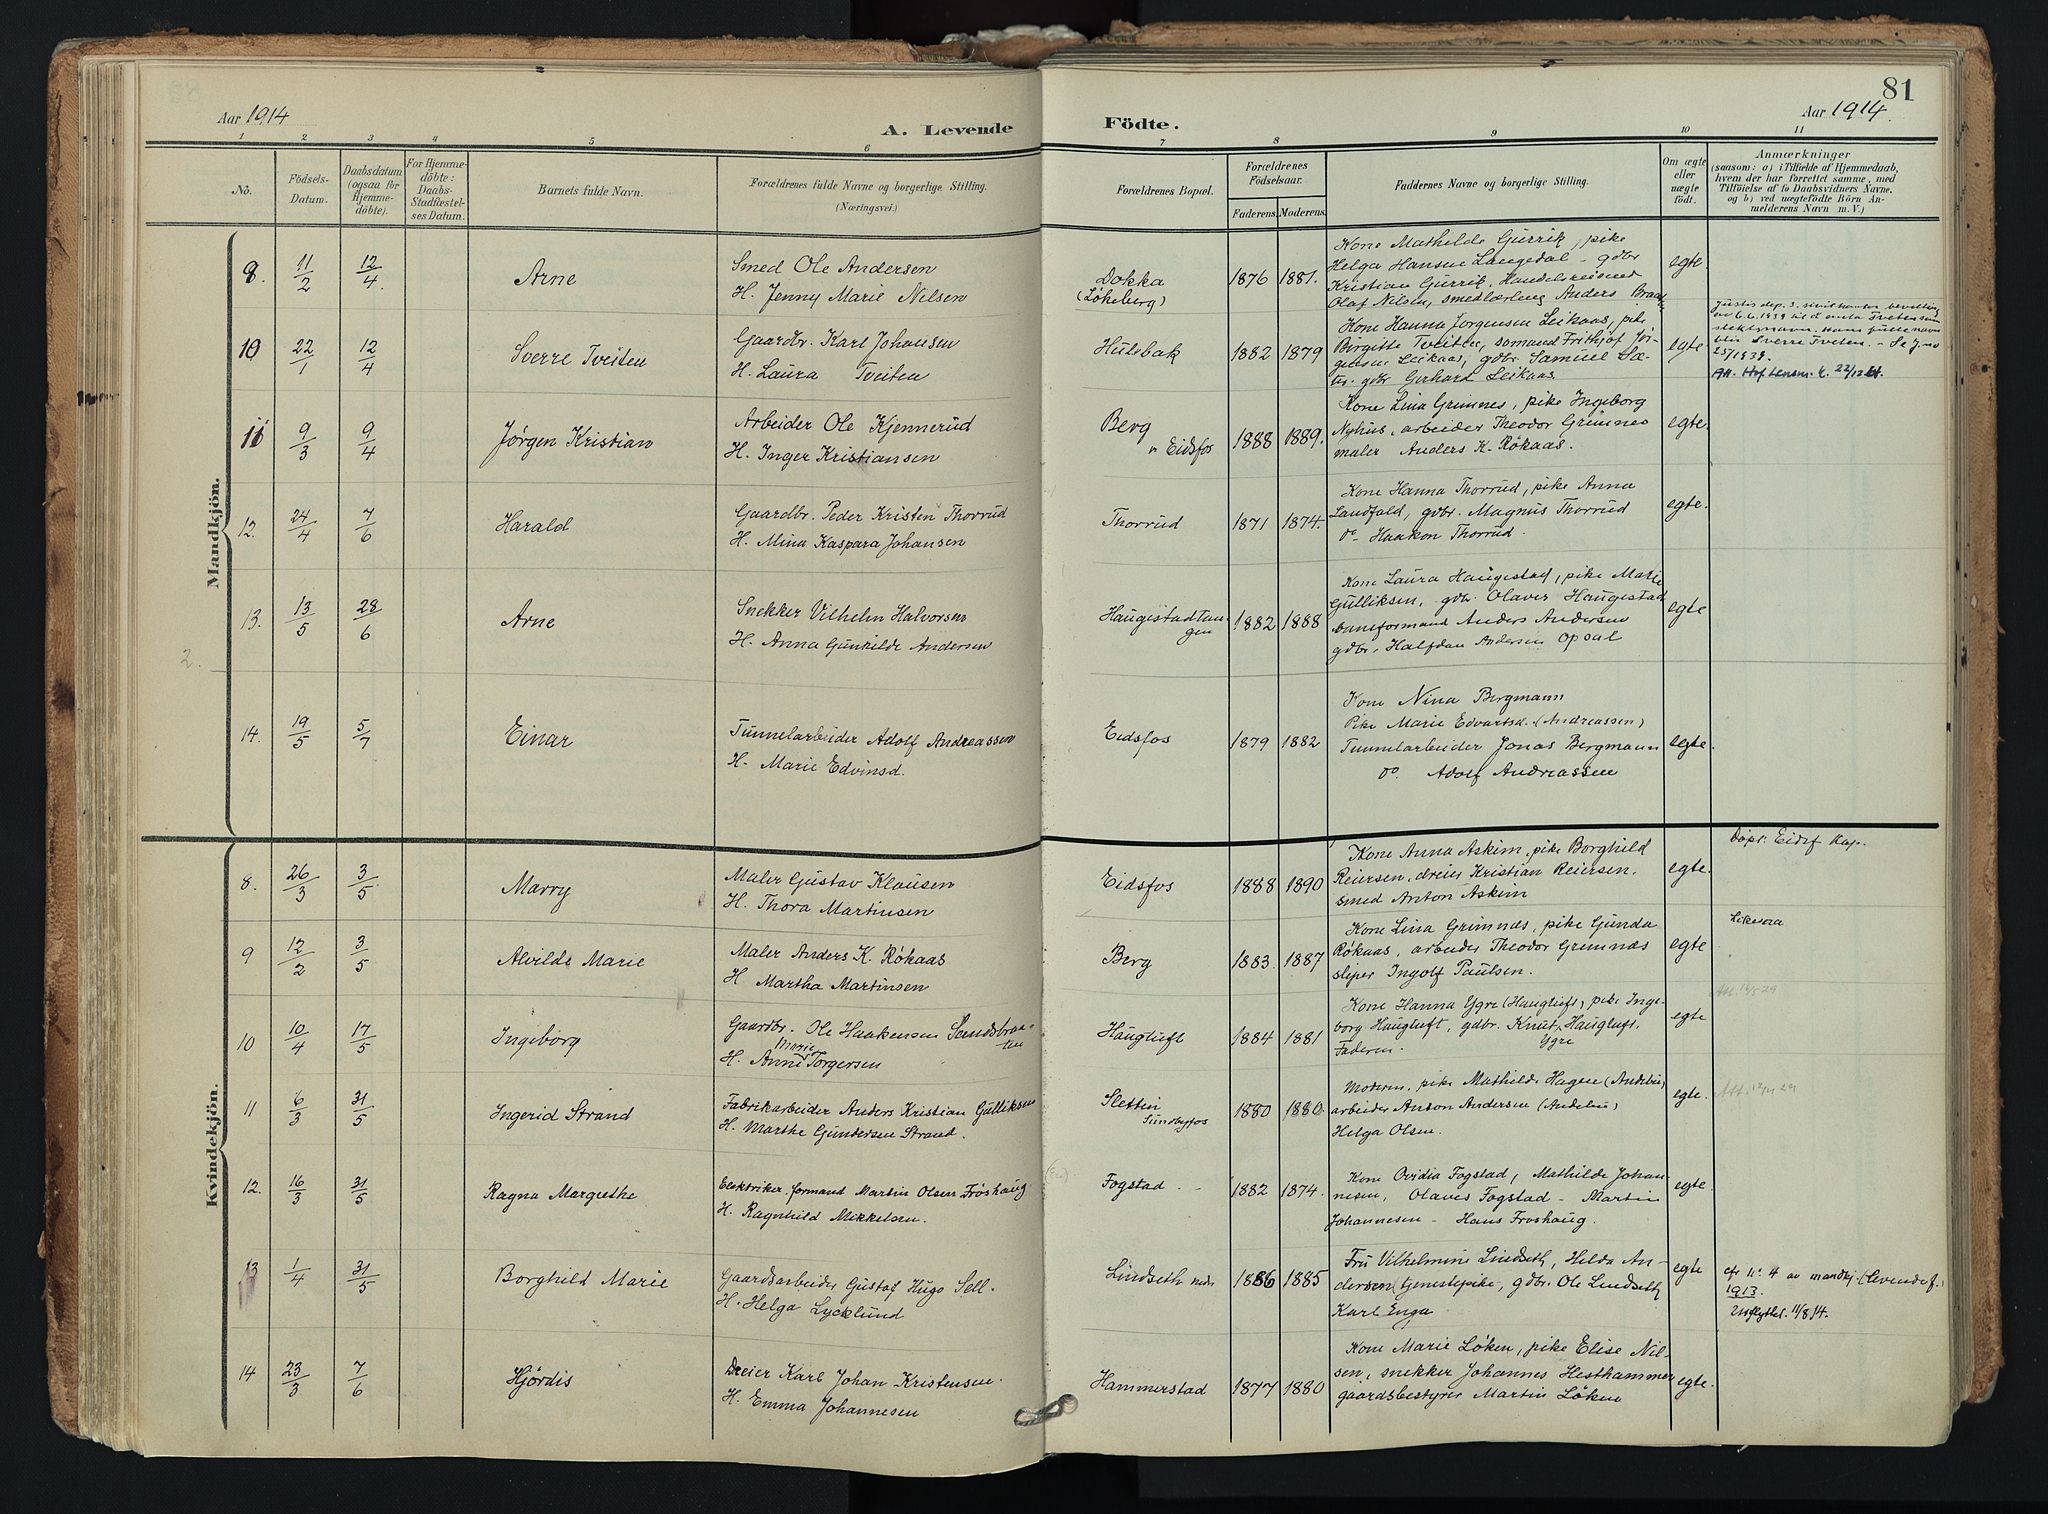 81
Aar 1914
A. Levende
Födte.
Aar 1914.
1 2 3 4 5 6 7 8 9 10 11
No.
Födsels-
Datum.
Daabsdatum
(ogsaa for
Hjemme-
döbte).
For Hjemme-
döbte:
Daabs-
Stadfæstel-
ses Datum.
Barnets fulde Navn.
Forældrenes fulde Navne og borgerlige Stilling.
(Næringsvei.)
Forældrenes Bopæl.
Forældrenes
Födselsaar.
Faderens. Moderens.
Faddernes Navne og borgerlige Stilling.
Om ægte
eller
uægte
födt.
Anmærkninger
(saasom: a) i Tilfælde af Hjemmedaab,
hvem der har forrettet samme, med
Tilföielse af to Daabsvidners Navne,
og b) ved uægtefödte Börn An-
melderens Navn m. V.)
Mandkjön.
8. 11/2 12/4. Arne
Smed Ole Andersen
H. Jenny Marie Nilsen
Dokka
(Løkeberg)
1876 1881.
Kone Mathilde Gurrik, pike
Helga Hansen Langedal - gdbr
Kristian Gurrik, Handelsreisend
Olaf Nilsen, smedlærling Anders Braat
egte.
10 22/1 12/4 Sverre Tveiten
Gaardbr. Karl Johansen
H. Laura Tveiten
Hulebak
1882 1879
Kone Hanna Jørgensen Leikaas, pike
Birgitte Tveiten, sømand Frithjof Jør-
gensen Leikaas, gdbr. Samuel Sæ-
ter. gdbr Gerhard Leikaas.
egte
Justis dep. 3. sivilkontor bevilling
av 6.6.1939 til å anta Tveten som
slektsnavn. Hans fulle navn
blir Sverre Tveten. - Se J.no
25/1939.
Att. Hof Lensm. k. 22/12 61.
11 9/3 9/4 Jørgen Kristian
Arbeider Ole Kjennerud
H. Inger Kristiansen
Berg
v. Eidsfos
1888 1889.
Kone Lina Grimnes, pike Ingeborg
Nyhus, arbeider Theodor Grimnes
maler Anders K. Røkaas.
egte.
12. 24/4 7/6 Harald
Gaardbr. Peder Kristen Thorrud
H. Mina Kaspara Johansen
Thorrud
1871 1874.
Kone Hanna Thorrud, pike Anna
Landfald, gdbr. Magnus Thorrud
do- Haakon Thorrud.
egte.
13. 13/5 28/6 Arne
Snekker Vilhelm Halvorsen
H. Anna Gunhilde Andersen
Haugestadtan-
gen
1882 1888
Kone Laura Haugestad, pike Marie
Gulliksen, gdbr. Olaver Haugestad
baneformand Anders Andersen
gdbr. Halfdan Andersen Opsal
egte
2.
14. 19/5 5/7 Einar
Tunnelarbeider Adolf Andreassen
H. Marie Edvinsd.
Eidsfos
1879 1882
Kone Nina Bergmann
Pike Marie Edvartsd. (Andreassen)
Tunnelarbeider Jonas Bergmann
do. Adolf Andreassen
egte.
Kvindekjön.
8. 26/3 3/5 Marry
Maler Gustav Klausen
H. Thora Martinsen
Eidsfos
1888 1890
Kone Anna Askim, pike Borghild
Reiersen, dreier Kristian Reiersen,
smed Anton Askim
egte.
Døpt: Eidsf Kap.
9 12/2 3/5 Alvilde Marie
Maler Anders K. Røkaas
H Martha Martinsen
Berg
1883 1887
Kone Lina Grimnes, pike Gunda
Røkaas, arbeider Theodor Grimnes
sliper Ingolf Paulsen.
egte
Likesaa
10 10/4 17/5 Ingeborg
Gaardbr. Ole Haakensen Sandsbraa-
ten
H. Anne Marie Torgersen
Haugtuft
1884 1881
Kone Hanna Ygre (Haugtuft), pike Inge-
borg Haugtuft, gdbr. Knut Haugtuft,
Ygre
Faderen.
egte
11 6/3 31/5 Ingerid Strand
Fabrikarbeider Anders Kristian Gulliksen
H. Marthe Gundersen Strand.
Sletten
Sundbyfos
1880 1880
Moderen, pike Mathilde Hagen (Andebu)
arbeider Anton Andersen (Andebu)
Helga Olsen.
egte.
Att. 12/11 29
12. 16/3 31/5 Ragna Margrethe
Elektriker-formand Martin Olsen Frøshaug
H. Ragnhild Mikkelsen.
Fogstad
1882 1874.
Kone Ovidia Fogstad, Mathilde Johan-
nesen, Olaves Fogstad - Martin
Johannesen - Hans Froshaug.
egte.
13 1/4 31/5 Borghild Marie
Gaardsarbeider Gustaf Hugo Sell.
H. Helga Lycklund
Lindseth nedr.
1886 1885
Fru Vilhelmine Lindseth, Hilda An-
dersen (tjenestepike, gdbr. Ole Lindseth
Karl Enga
egte
cfr. No. 4 av mandkj (levende f.)
1913.
Utflyttet 11/8 14.
14 23/3 7/6 Hjørdis
Dreier Karl Johan Kristensen.
H. Emma Johannesen
Hammerstad
1877 1880
Kone Marie Løken, pike Elise Nil-
sen, snekker Johannes Hesthammer
gaardsbestyrer Martin Løken
egte.